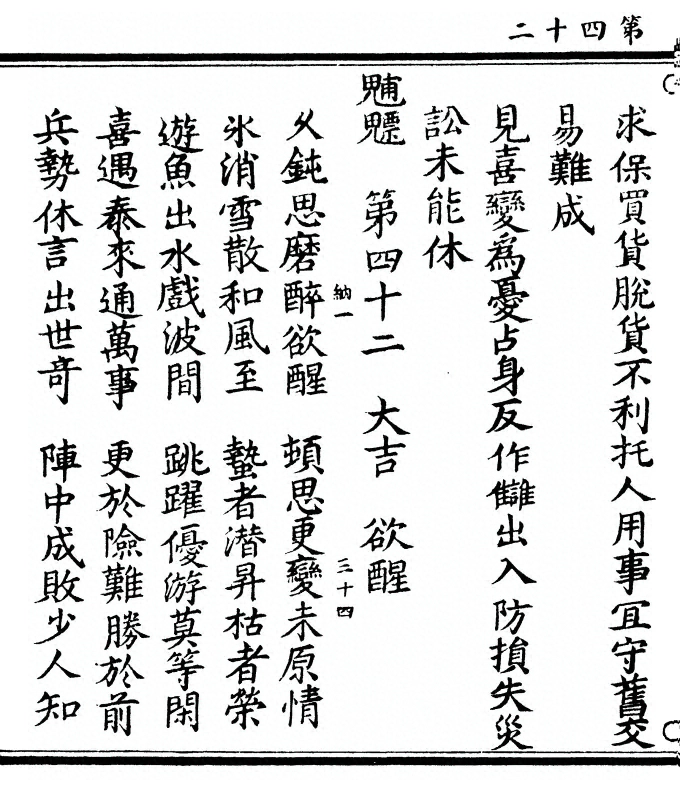 第四十二
求保買貨脫貨不利托人用事冝守舊交
易難成
見喜變爲憂占身反作讎出入防損失災
訟未能休
魓魒 第四十二 大吉 欲醒
納一 三十四
久鈍思磨醉欲醒 頓思更變未原情
氷消雪散和風至 蟄者潛昇枯者榮
遊魚出水戲波間 跳躍優游莫等閑
喜遇泰來通萬事 更於險難勝於前
兵勢休言出世竒 陣中成敗少人知